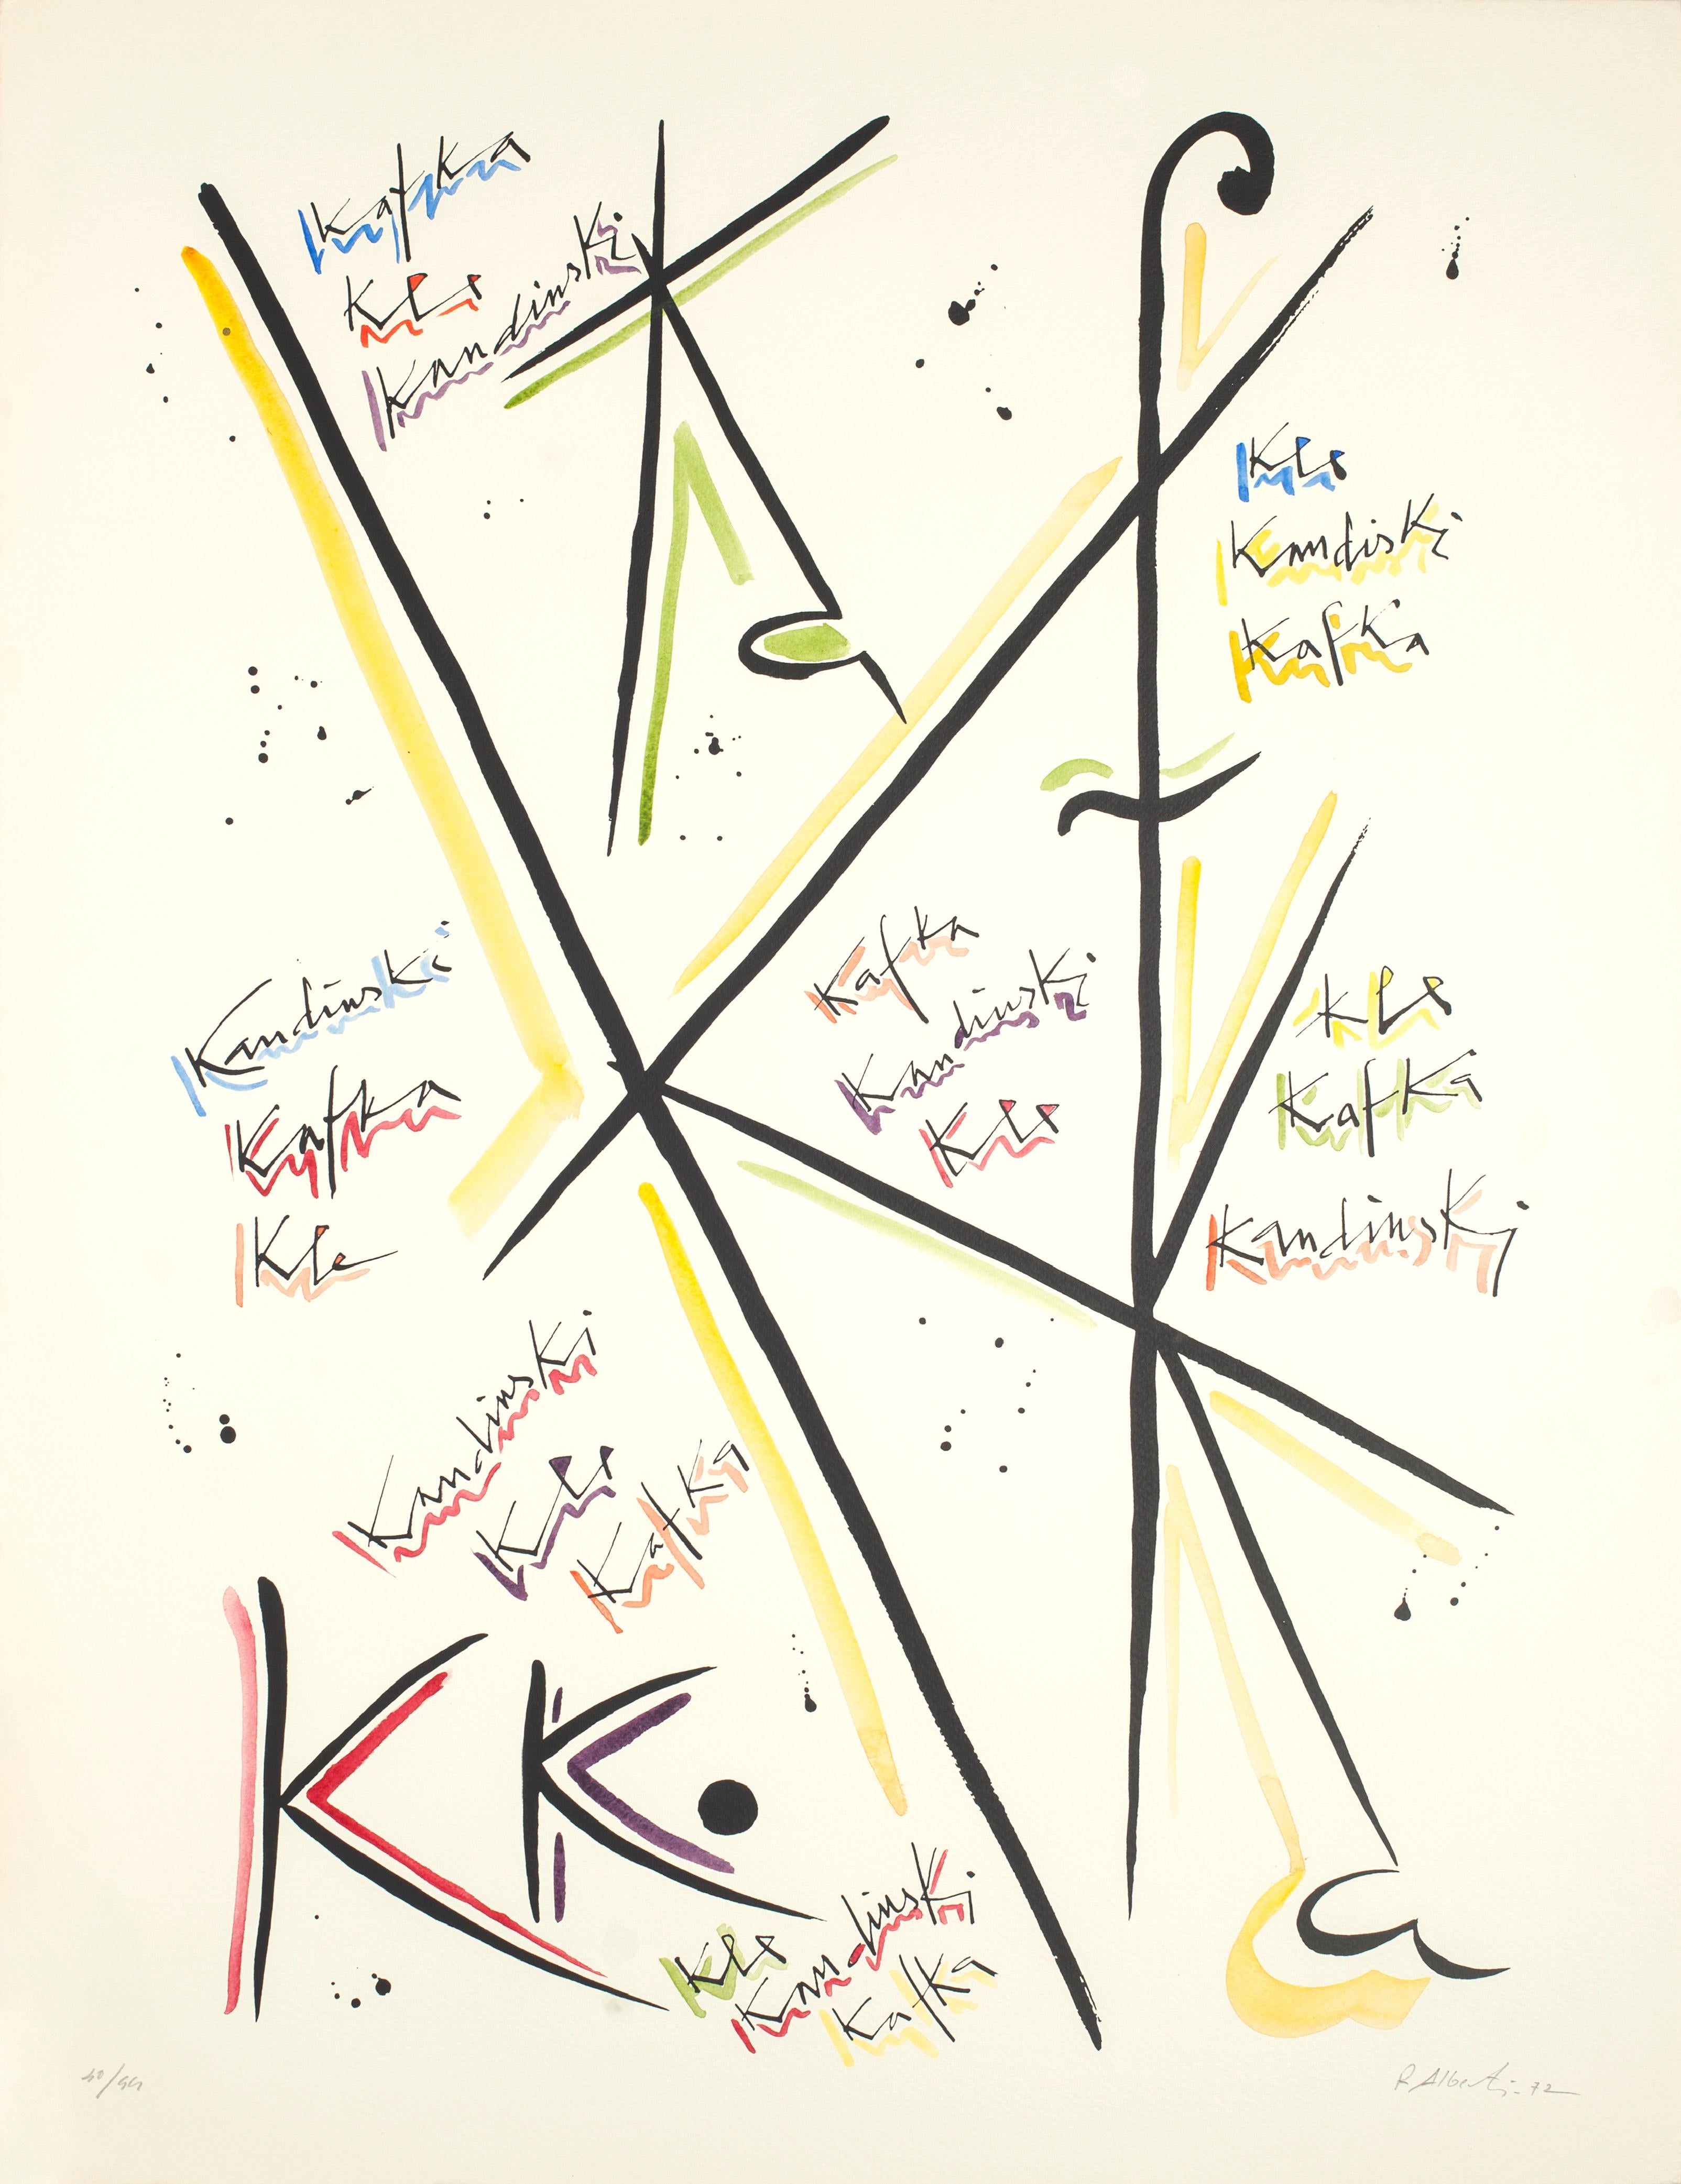 Kafka
Kle
Kandinski
Kle
Kandiski
Kafka
Kandinski
Kafka
Kle
Kafka
Kandinski
Kle
Kle
Kafka
Kandinski
Kandinski
Kle
Kafka
Kafka
K K.
Kle
Kandinski
Kafka
R Alberti - 72